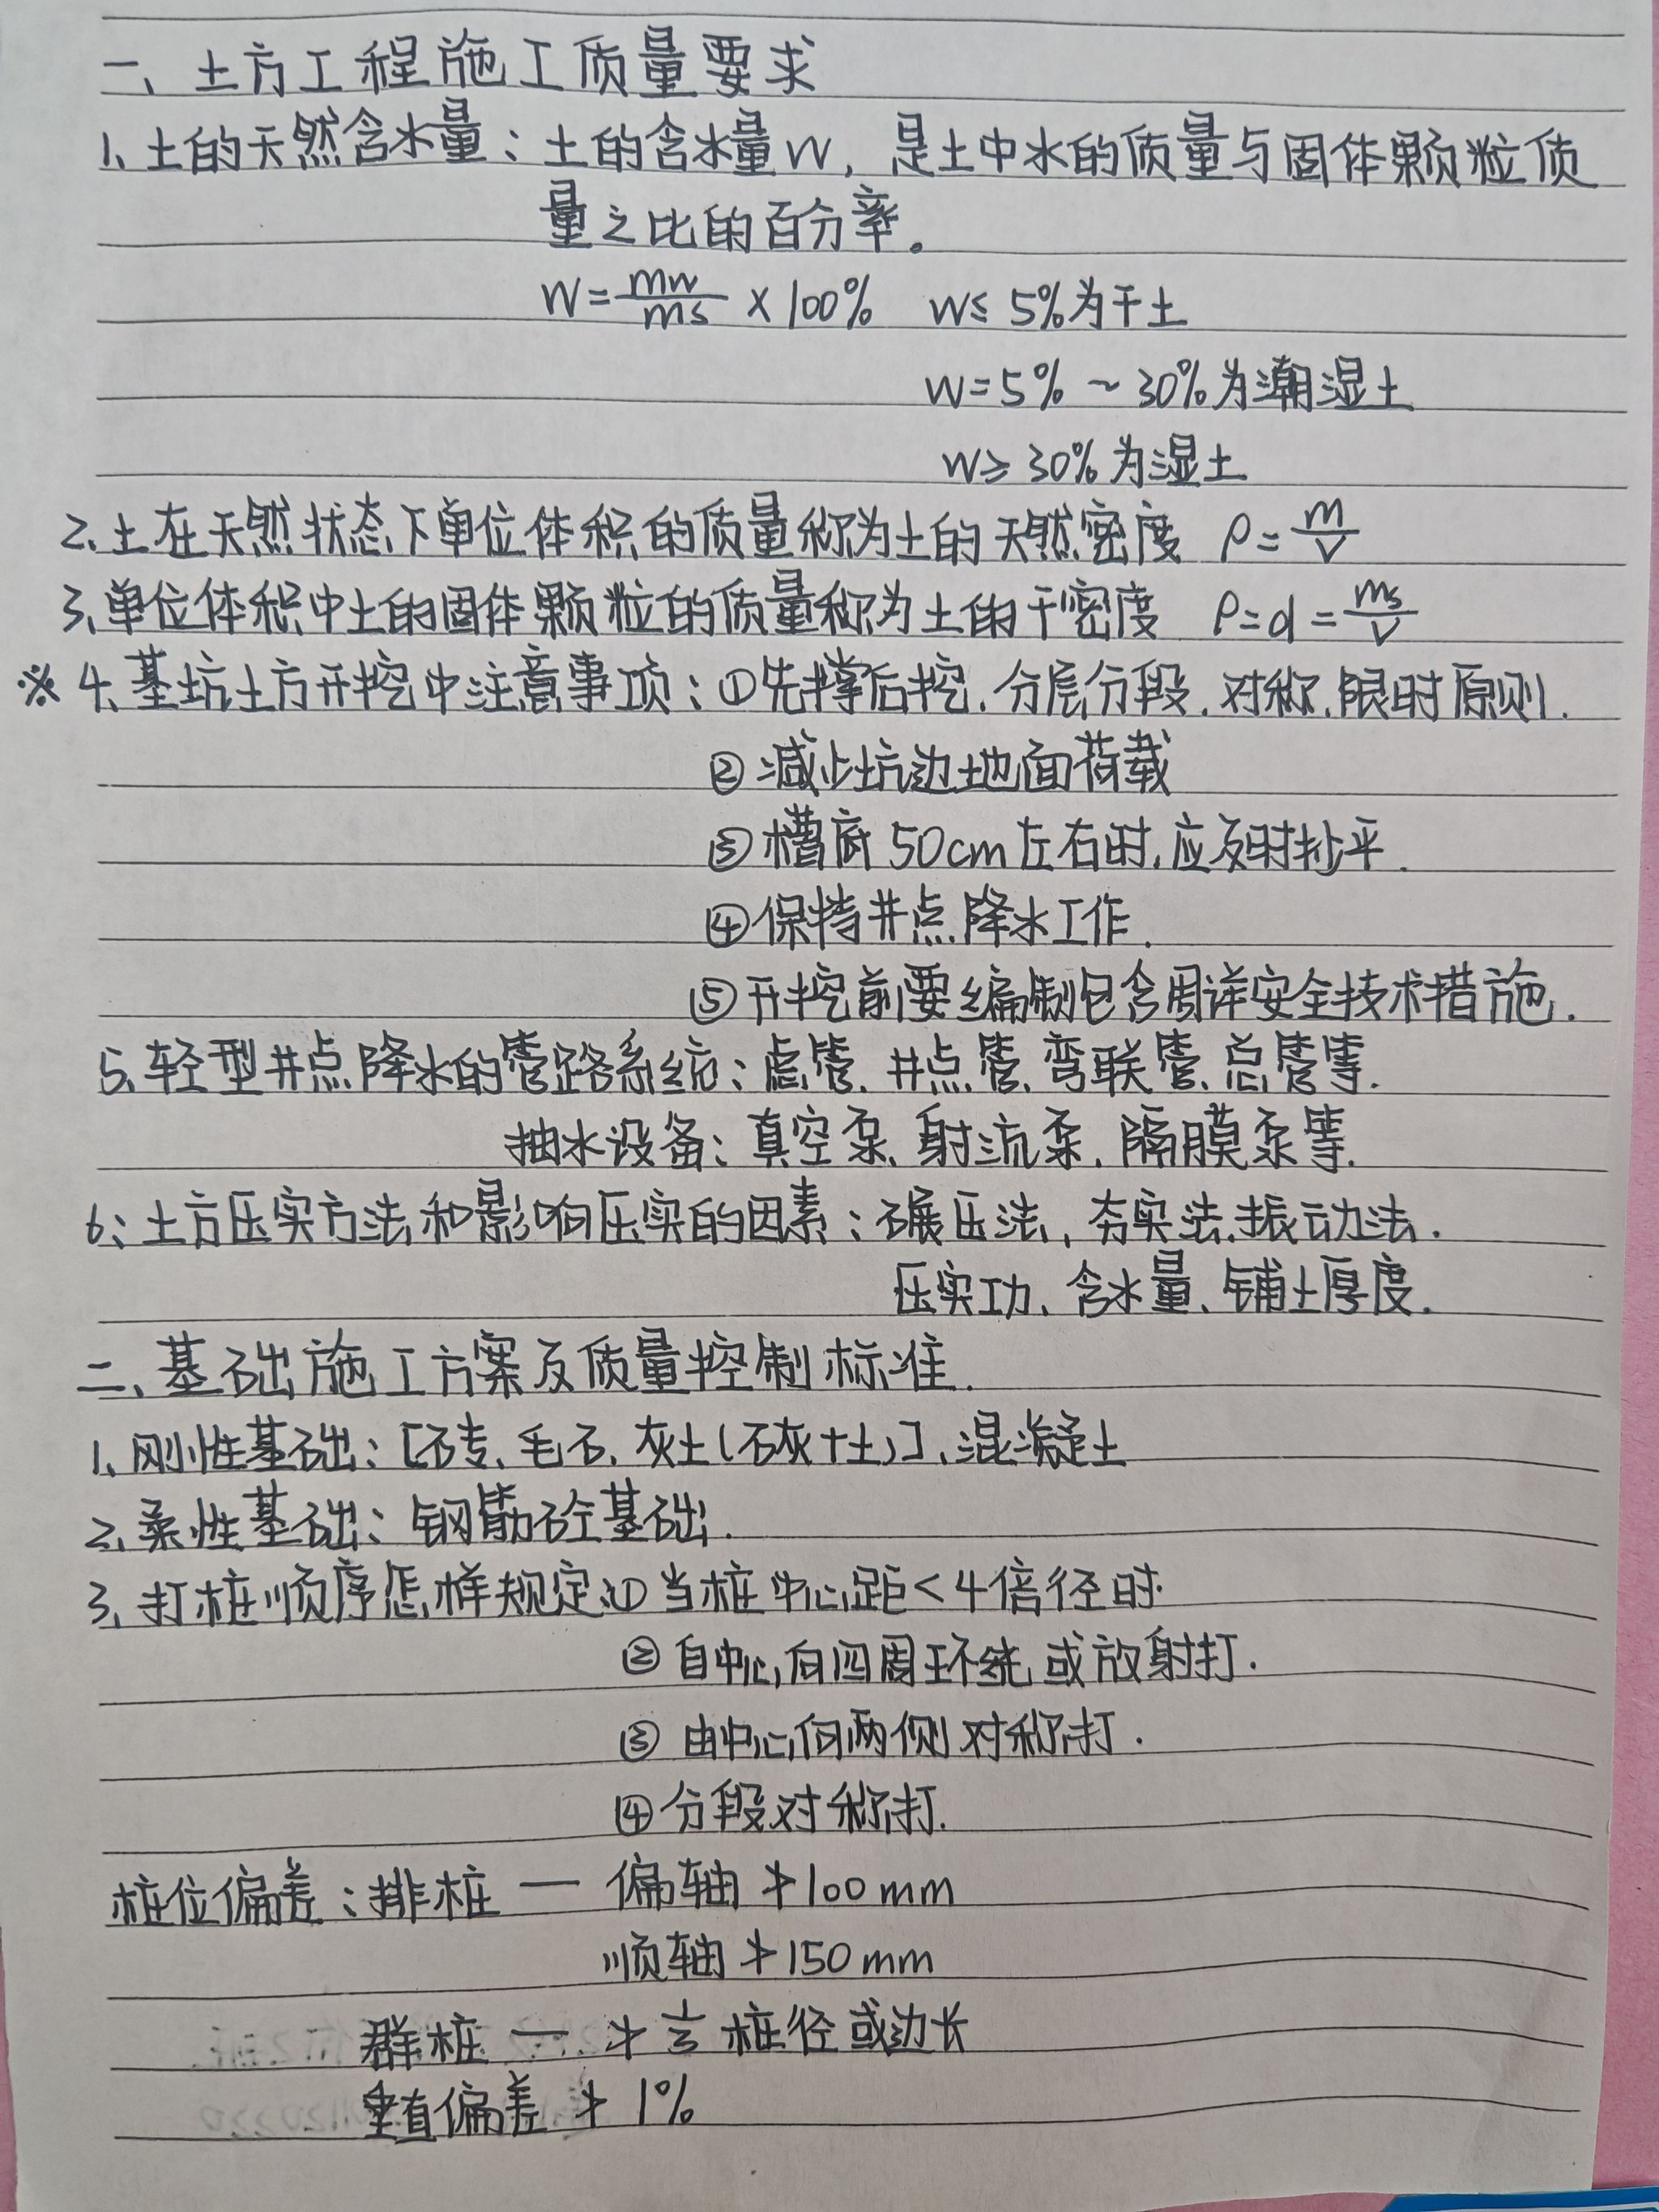 一、土方工程施工质量要求
1、土的天然含水量：土的含水量W，是土中水的质量与固体颗粒质
量之比的百分率。
W=mw/ms×100% W≤5%为干土
W=5%~30%为潮湿土
W≥30%为湿土
2、土在天然状态下单位体积的质量称为土的天然密度 ρ=m/V
3、单位体积中土的固体颗粒的质量称为土的干密度 ρ=d=ms/V
※4、基坑土方开挖中注意事项：①先撑后挖、分层分段、对称、限时原则.
②减少坑边地面荷载
③槽底50cm左右时,应及时抄平.
④保持井点降水工作.
⑤开挖前要编制包含周详安全技术措施.
5、轻型井点降水的管路系统：虑管、井点管、弯联管、总管等.
抽水设备：真空泵、射流泵、隔膜泵等.
6、土方压实方法和影响压实的因素：碾压法，夯实法、振动法.
压实功、含水量、铺土厚度.
二、基础施工方案及质量控制标准.
1、刚性基础：[砖、毛石、灰土(石灰+土)]、混凝土
2、柔性基础：钢筋砼基础.
3、打桩顺序怎样规定：①当桩中心距<4倍径时.
②自中心向四周环绕或放射打.
③由中心向两侧对称打.
④分段对称打.
桩位偏差：排桩—偏轴≯100mm
顺轴≯150mm
群桩—≯1/3桩径或边长
垂直偏差≯1%